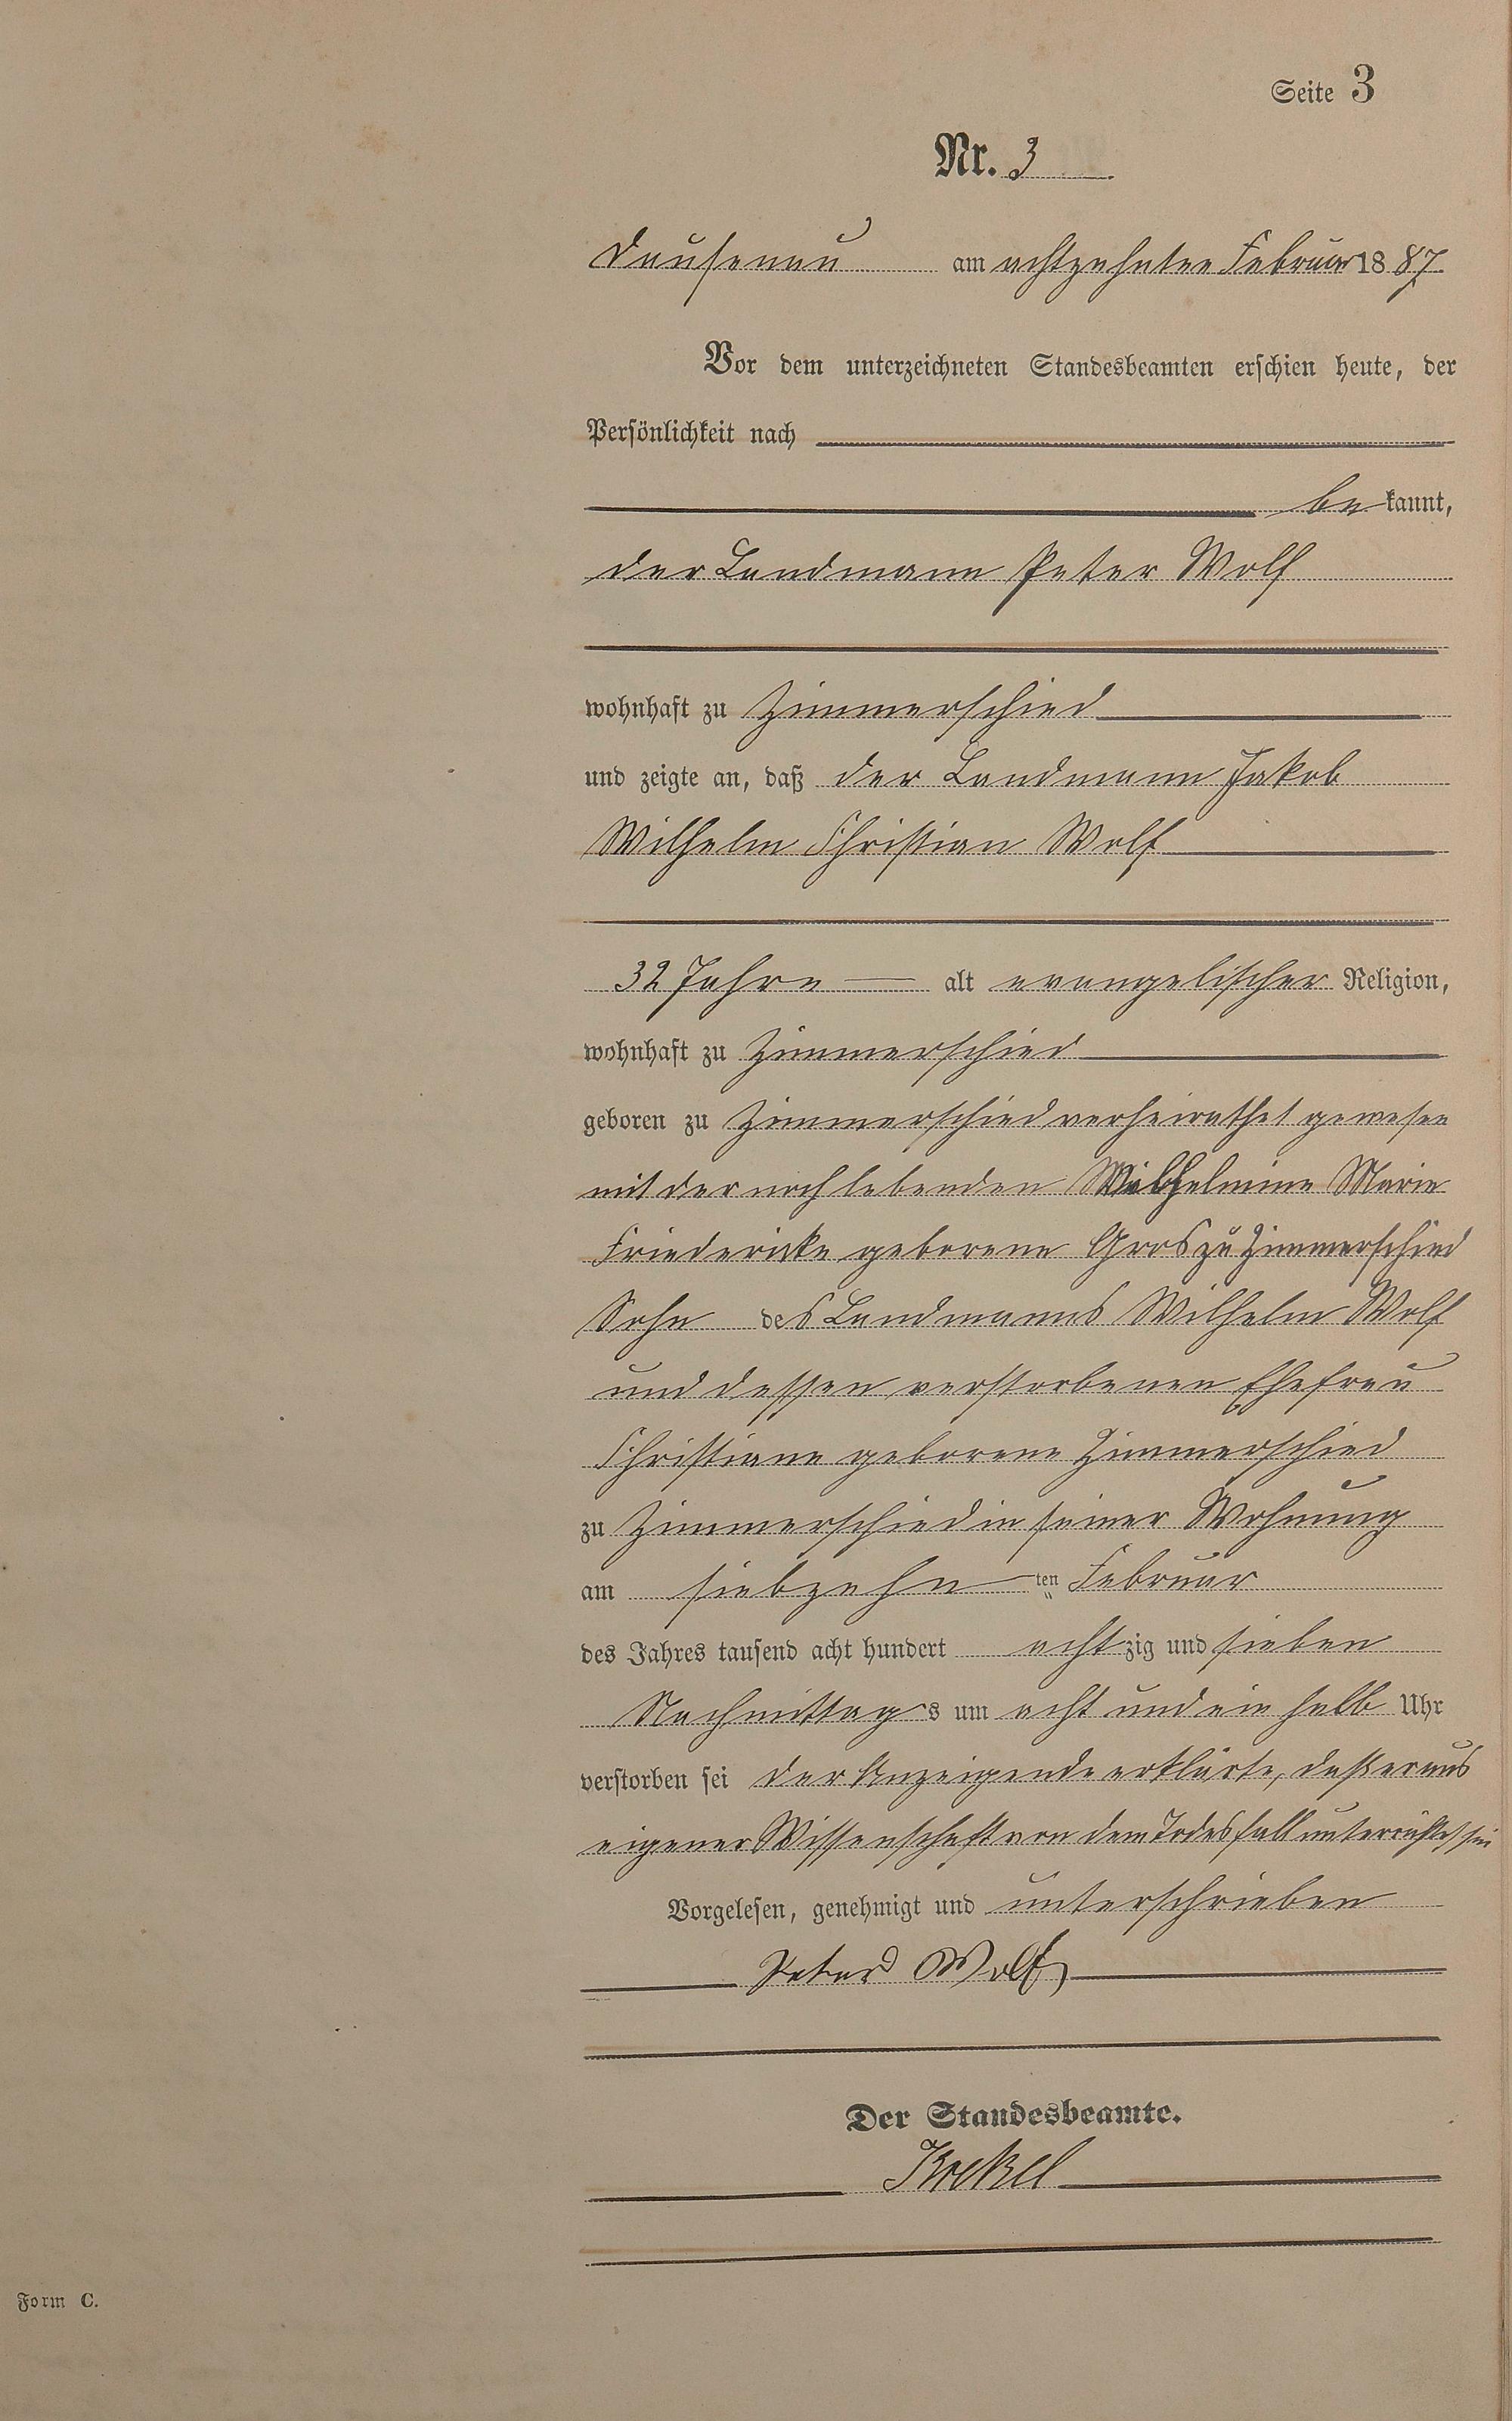 Seite 3
Nr. 3
Dausenau am achtzehnten Februar 1887.
Vor dem unterzeichneten Standesbeamten erschien heute, der
Persönlichkeit nach
bekannt,
der Landmann Peter Wolf
wohnhaft zu Zimmerschied
und zeigte an, daß der Landmann Jakob
Wilhelm Christian Wolf
32 Jahre alt evangelischer Religion,
wohnhaft zu Zimmerschied
geboren zu Zimmerschied verheirathet gewesen
mit der noch lebenden Wilhelmine Marie
Friedericke geborene Gros zu Zimmerschied
Sohn des Landmanns Wilhelm Wolf
und dessen verstorbenen Ehefrau
Christiane geborene Zimmerschied
zu Zimmerschied in seiner Wohnung
am siebzehnten Februar
des Jahres tausend acht hundert achtzig und sieben
Nachmittags um acht und ein halb Uhr
verstorben sei der Anzeigende erklärte, daß er aus
eigener Wissenschaft von dem Todesfall unterrichtet sei
Vorgelesen, genehmigt und unterschrieben
Peter Wolf
Der Standesbeamte.
Form C.